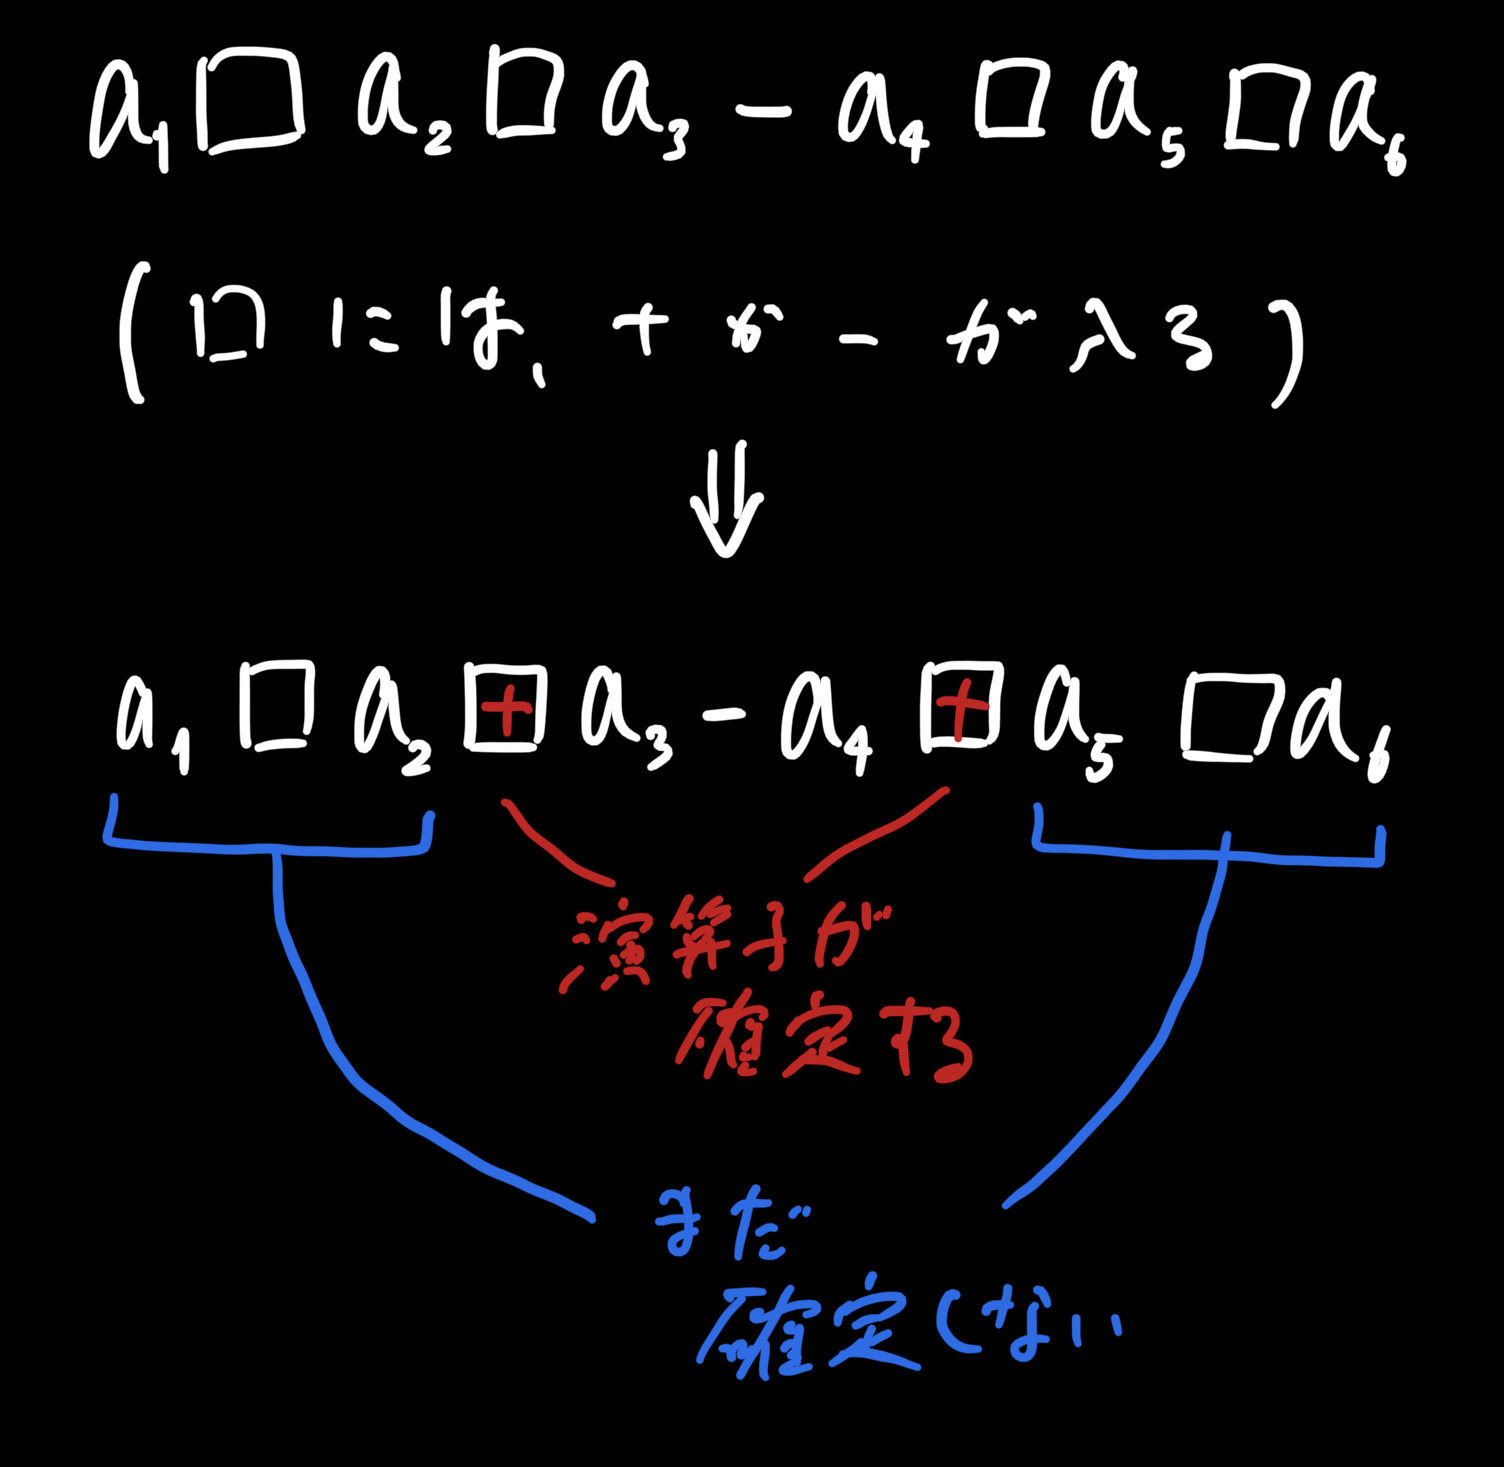 a₁□a₂□a₃-a₄□a₅□a₆
(□には、+か-が入る)
⇓
a₁□a₂+a₃-a₄+a₅□a₆
演算子が
確定する
まだ
確定しない